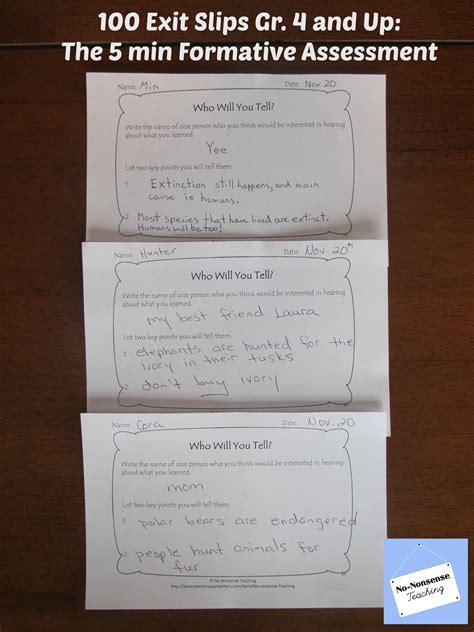 100 Exit Slips Gr. 4 and Up:
The 5 min Formative Assessment
Name: Min Date: Nov 20
Who Will You Tell?
Write the name of one person who you think would be interested in hearing
about what you learned.
Yee
List two key points you will tell them.
1. Extinction still happens, and main
cause is humans.
2. Most species that have lived are extinct.
Humans will be too!
Name: Hunter Date: Nov. 20th
Who Will You Tell?
Write the name of one person who you think would be interested in hearing
about what you learned.
my best friend Laura
List two key points you will tell them.
1. elephants are hunted for the
ivory in their tusks
2. don't buy ivory
Name: Cora Date: Nov. 20
Who Will You Tell?
Write the name of one person who you think would be interested in hearing
about what you learned.
mom
List two key points you will tell them.
1. polar bears are endangered
2. people hunt animals for
fur
© No-Nonsense Teaching
No-Nonsense
Teaching